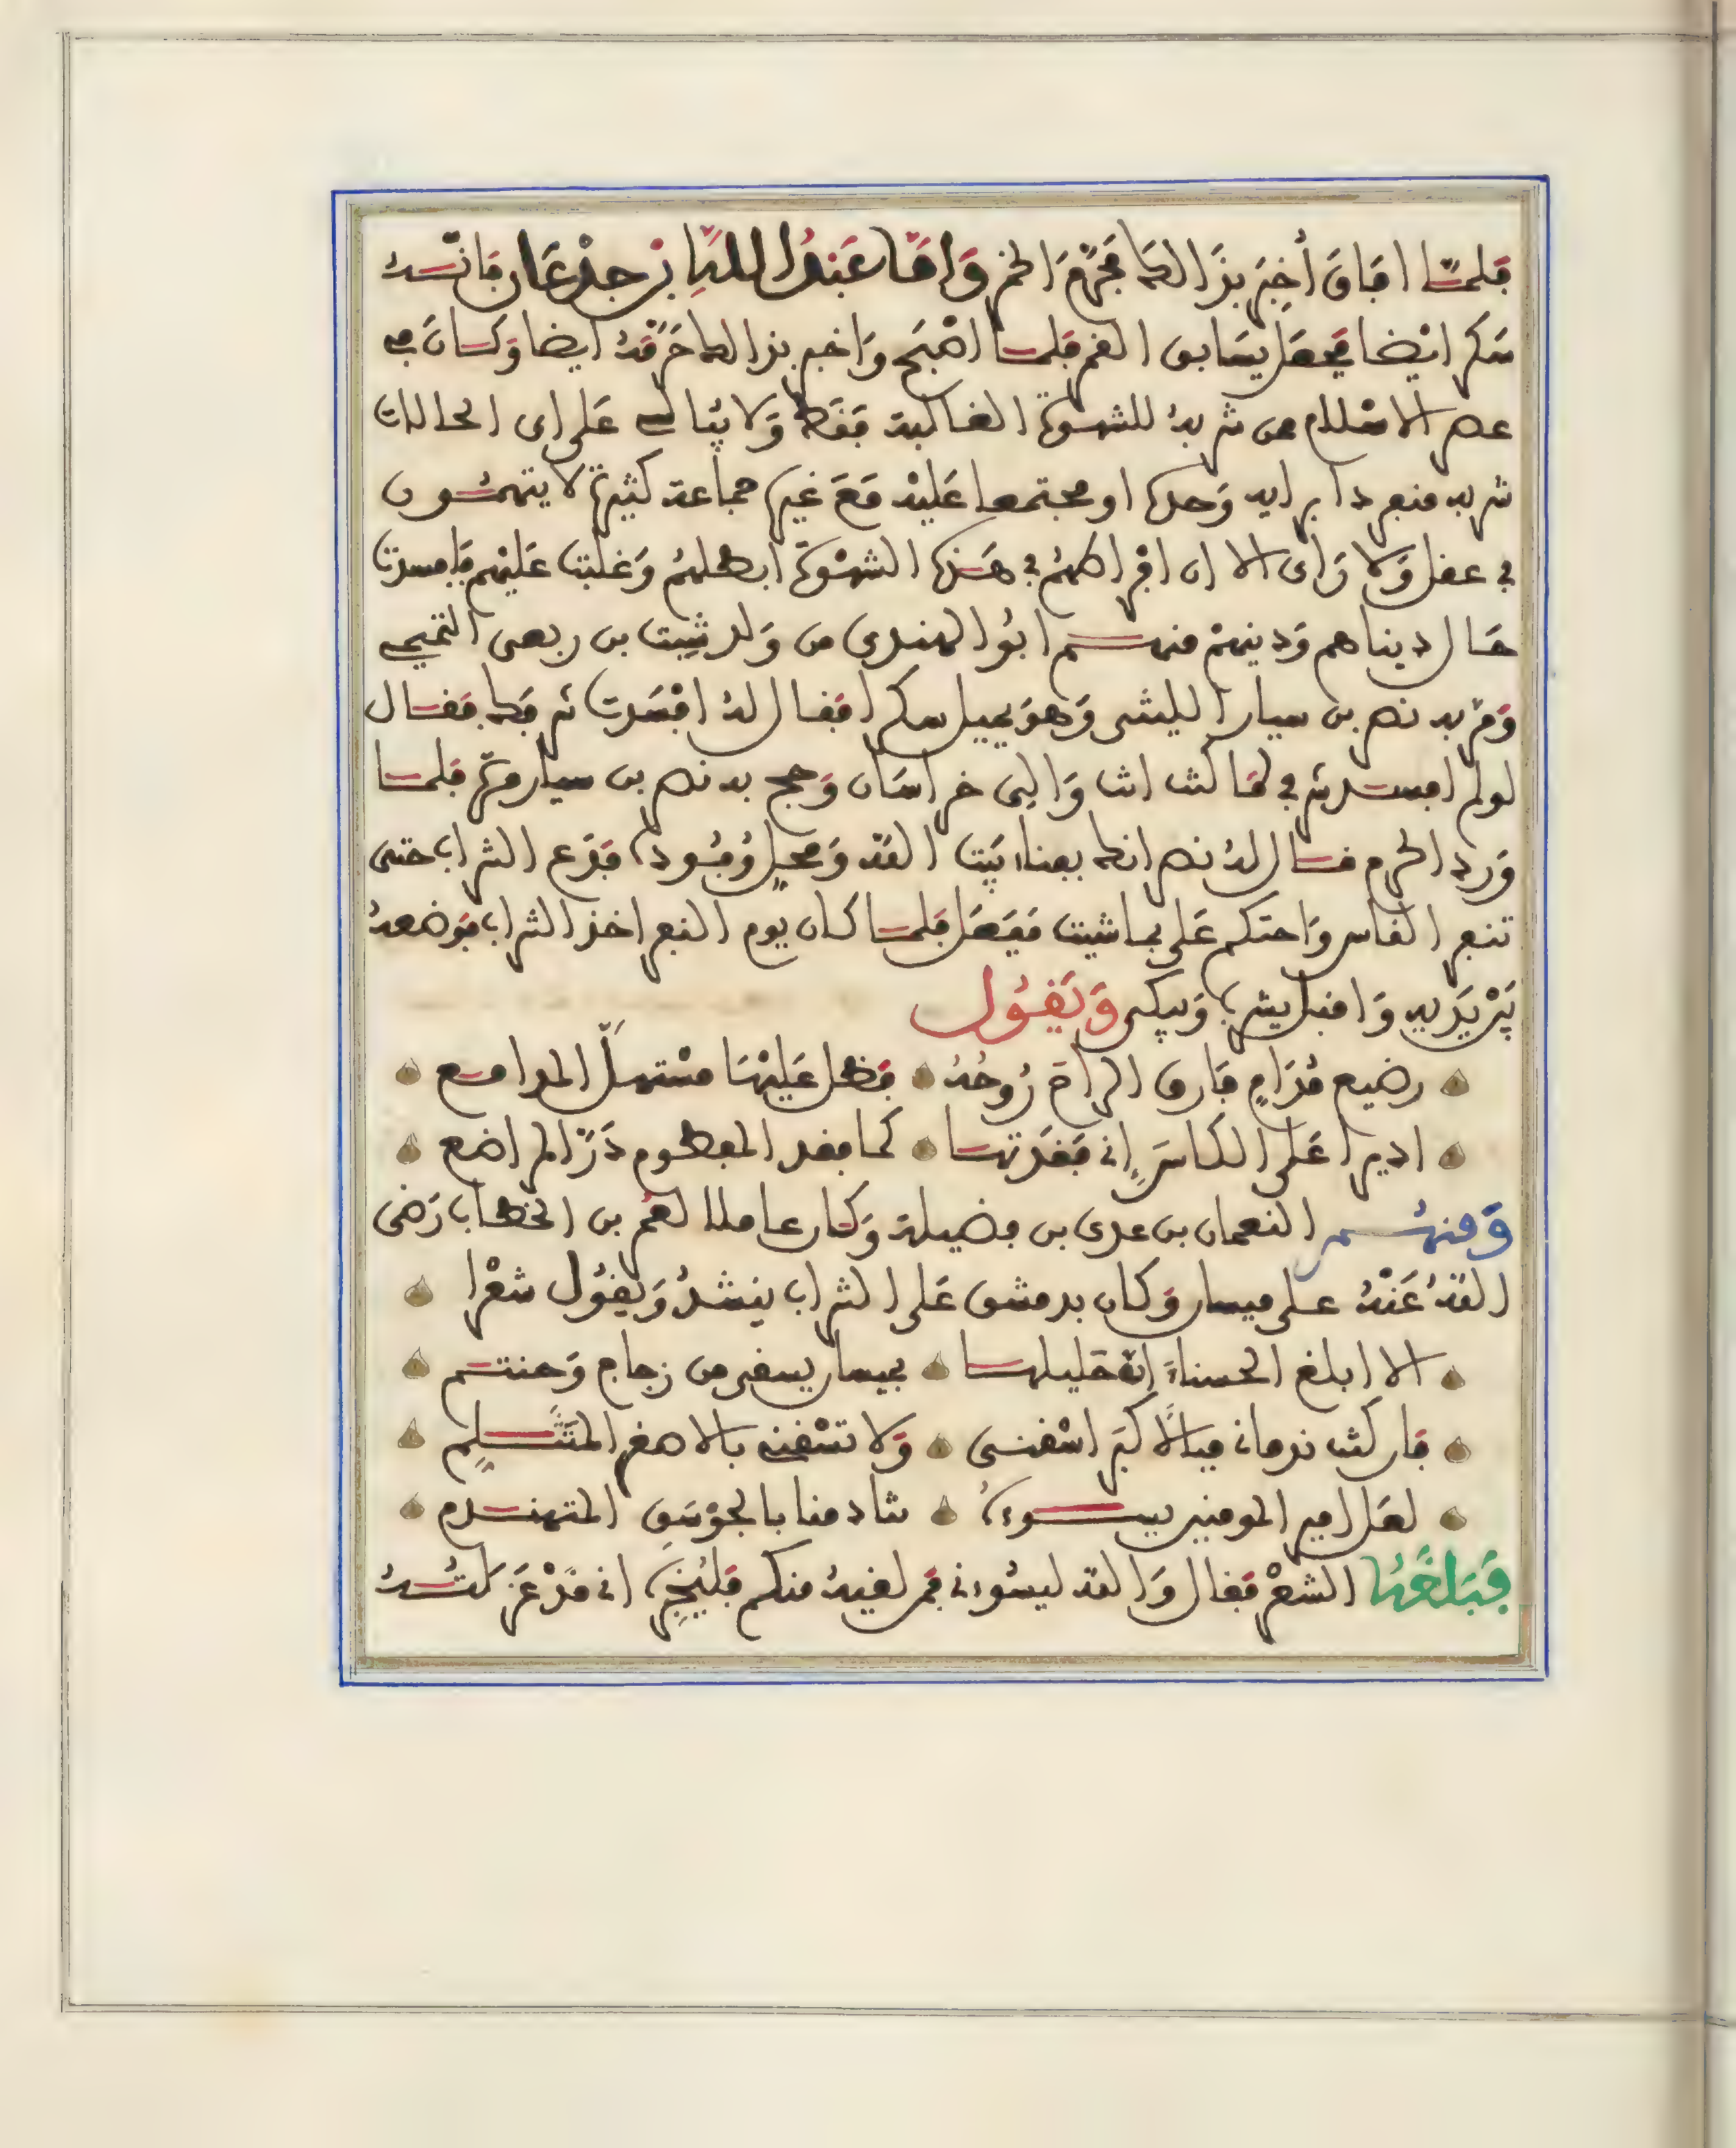 فلما افاق أخبر بذالك فحرّم الخمر وَامّا عَبْدُ اللهِ بْن جدْعَان فانّه
سَكر ايْضا فجعل يسَابق القمر فلما اصْبَح وَاخبر بذالك حَرّمهُ ايضا وَكان في
عصر الاسْلام من شربهُ للشهوة الغالبة فقط وَلا يُبالي عَلى اى الحالات
شربه منفردا برايه وَحده او مجتمعا عَليْه مَعَ غيره جماعة كثيرة لا يتهمُون
في عقل وَلا رَاى الا ان افراطهُم في هَذه الشهْوَة ابطلهُم وَغلبت عَليْهم فافسدت
حَال ديناهم وَدينهمْ منهم ابُو الهندي من وَلد شبِث بن ربعى التميمي
وَمرّ به نصر بن سيار الليثى وَهوَ يميل سكرا فقال لهُ افسَدت شرفك فقال
لولم افسد شرفي لمَا كنت انت وَالى خراسَان وَحج به نصر بن سيار مرّة فلما
وَرد الحرم قال لهُ نصر انك بفناء بَيْت الله وَمحلِ وُفُوده فدَع الشراب حتى
تنفر الناس وَاحتكم عَلى بما شيت ففعَل فلما كان يوم النفر اخذ الشراب فوَضعهُ
بَيْن يَدَيه وَاقبل يشربه وَيبكى وَيَقُول
رضيع مُدَامٍ فارق الراح رُوحُهُ فظل عَليْهَا مسْتهلّ المدامع
اديرا عَلى الكاسَ إنى فقدتها كما فقد المفطوم دَرّ المراضع
وَمنهُم النعمان بن عدى بن فضيلة وَكان عاملا لعُمر بن الخطاب رَضى
اللهُ عَنْهُ على ميسان وَكان بدمشق عَلى الشراب ينشدُ وَيقوُل شعْرا
الا ابلغ الحسناءَ انّ خليلها بميسان يسقى من زجاج وَحنتم
فان كنت ندمانى فبالاكبَر اسْقنى وَلا تسْقنى بالاصغر المتَثَلِم
لعَل امير المومنين يسوءه تنادمنا بالجوْسَقِ المتهدم
فَبَلغَهُ الشعْر فقال وَالله ليسُوءنى فمن لقيهُ منكم فليُخبِره انى قدْ عَزلتُهُ